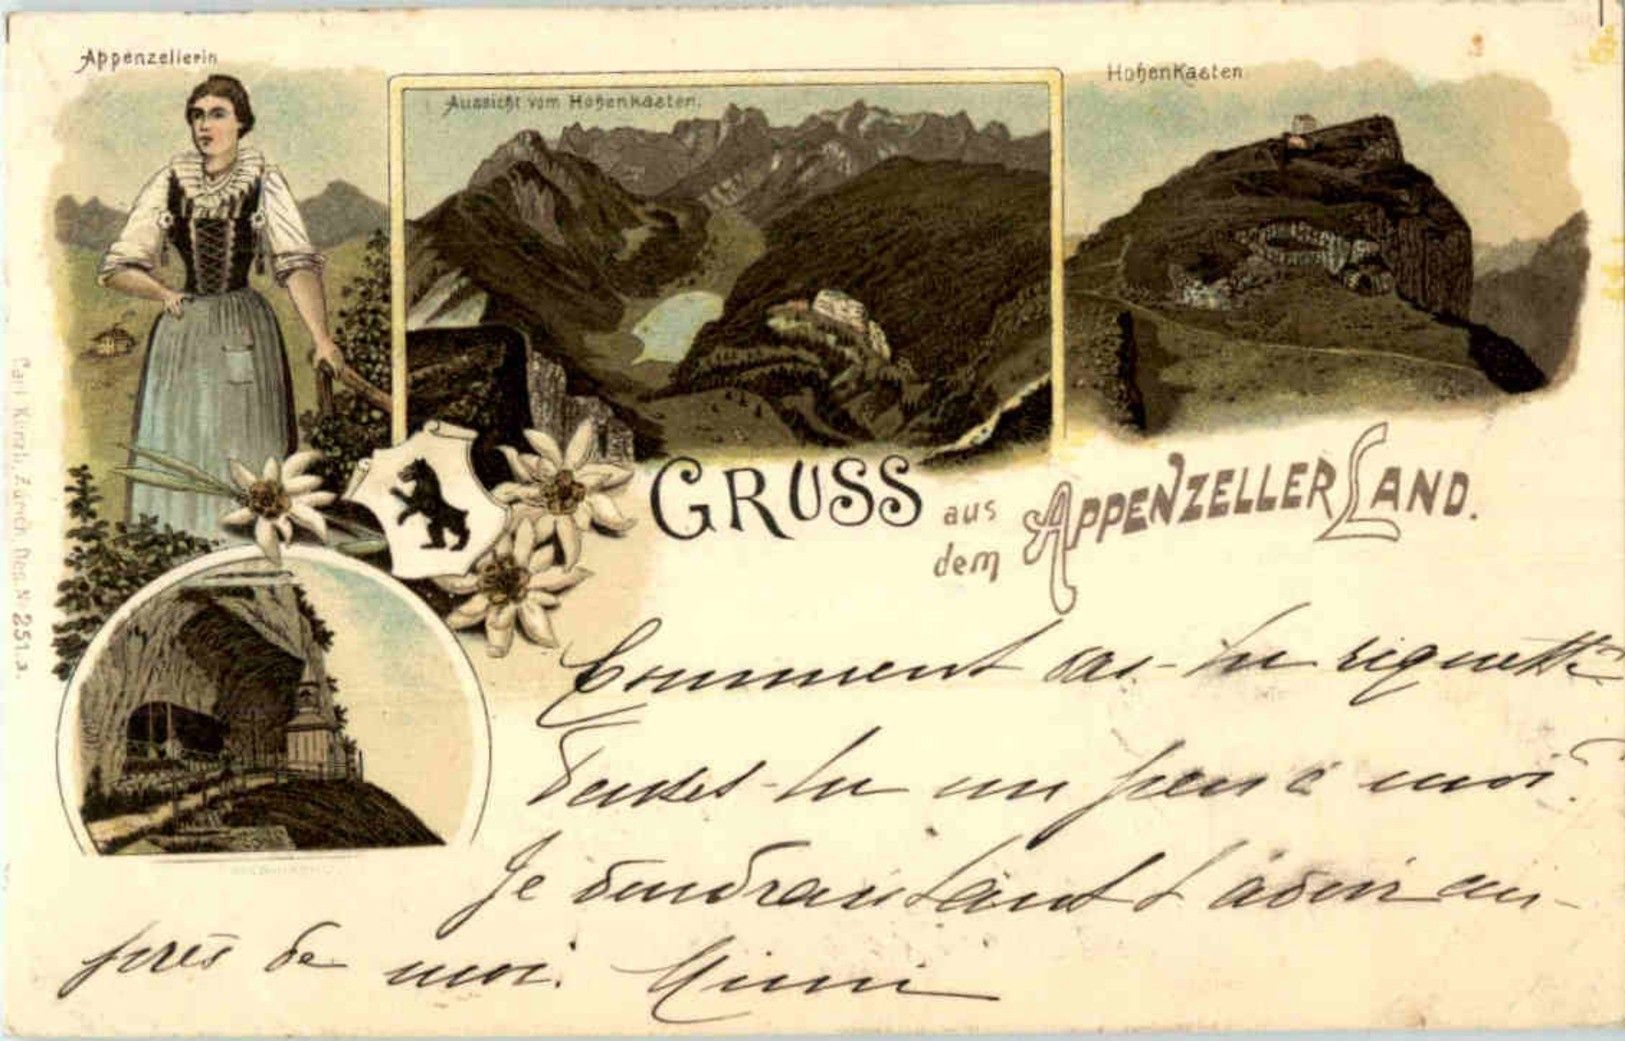 Appenzellerin
Aussicht vom Hohenkasten.
Hohenkasten
GRUSS aus dem APPENZELLERLAND.
Carl Künzli, Zürich Des. No 251.
Comment vas-tu
Penses-tu un peu à moi?
Je voudrais tant t'avoir au-
près de moi. Mimi